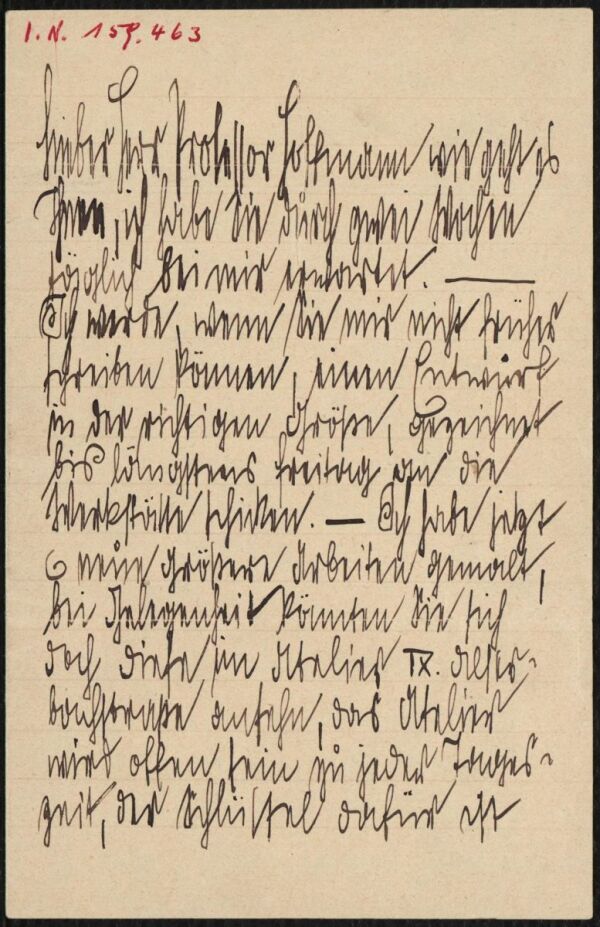 I.N. 159.463
Lieber Herr Professor Hoffmann wie geht es
Ihnen, ich habe Sie durch zwei Wochen
täglich bei mir erwartet. —
Ich werde, wenn Sie mir nicht früher
schreiben können, einen Entwurf
in der richtigen Größe, gezeichnet
bis längstens Freitag an die
Werkstätte schicken. — Ich habe jetzt
6 neue größere Arbeiten gemalt,
bei Gelegenheit könnten Sie sich
doch diese im Atelier IX. Alser-
bachstraße ansehn, das Atelier
wird offen sein zu jeder Tages-
zeit, der Schlüssel dafür ist